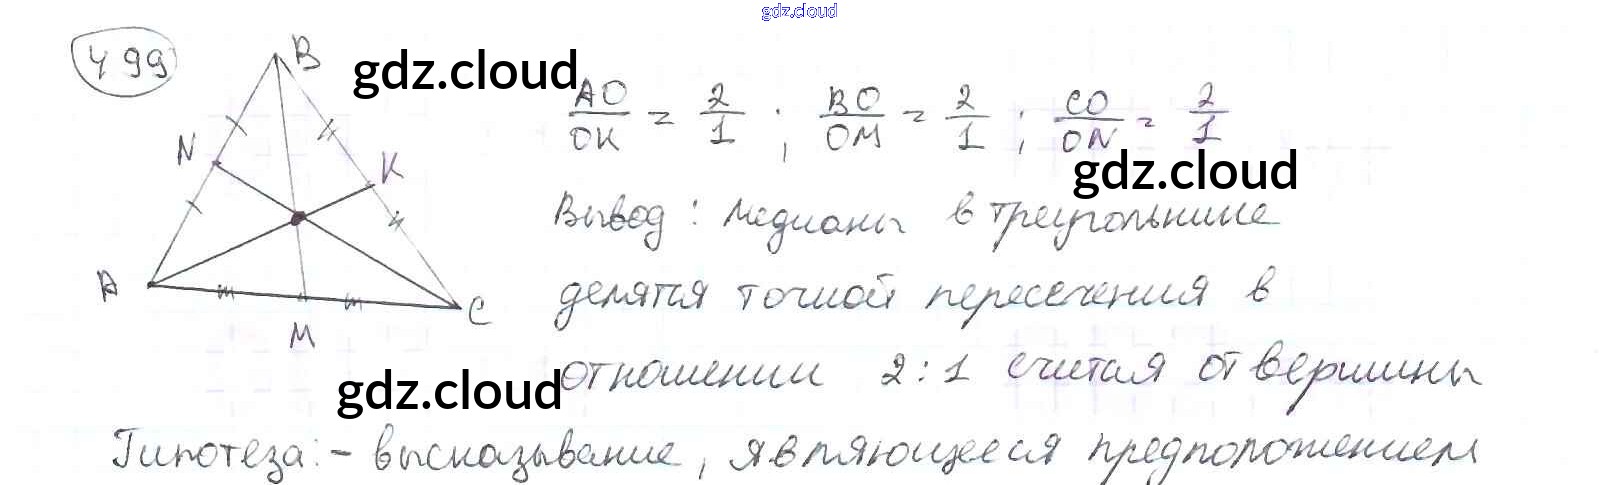 gdz.cloud
499
B
gdz.cloud
AO/OK = 2/1 ; BO/OM = 2/1 ; CO/ON = 2/1
N
K
gdz.cloud
Вывод : Медианы в треугольнике
A
делятся точкой пересечения в
C
M
отношении 2:1 считая от вершины
gdz.cloud
Гипотеза: - высказывание, являющееся предположением